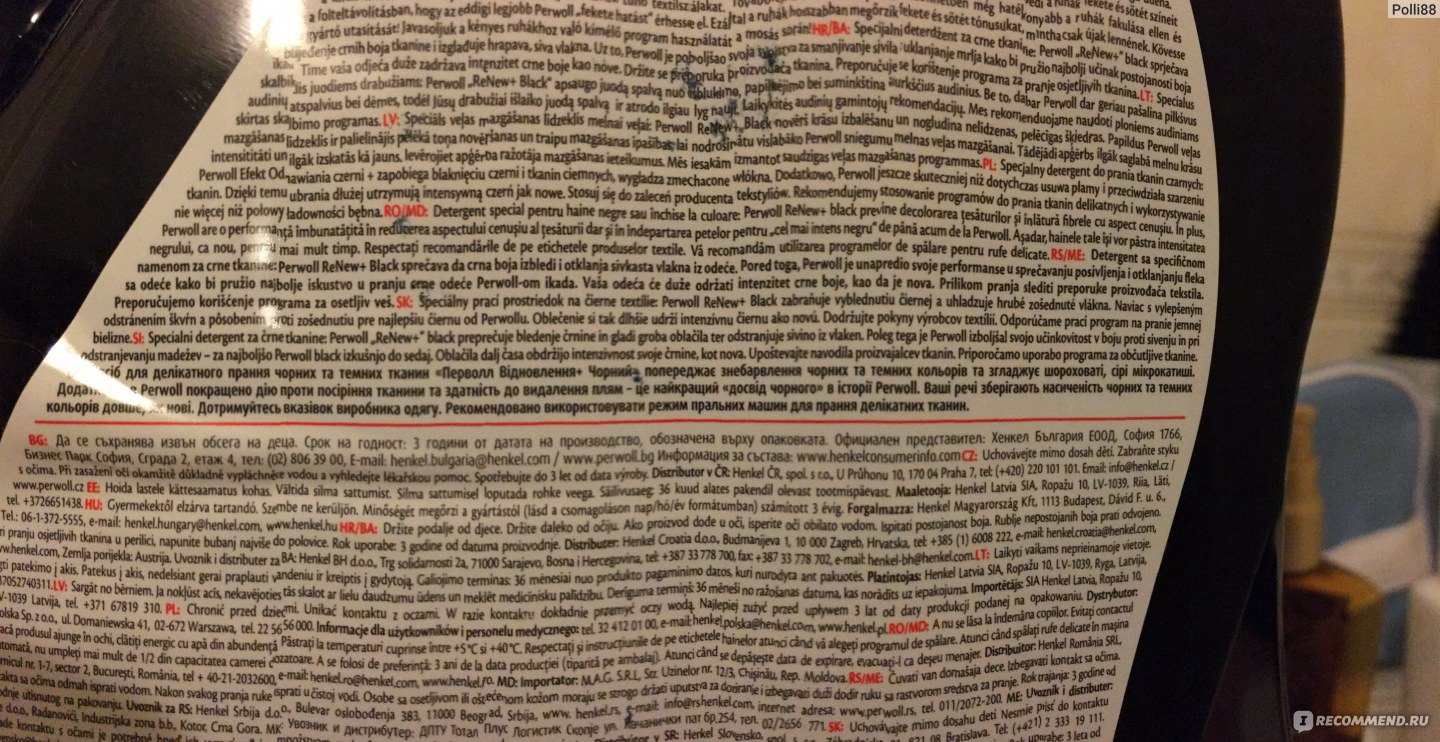 Polli88
a folteltávolításban, hogy az eddigi legjobb Perwoll „fekete hatást" érhesse el. Ezáltal a ruhák hosszabban megőrzik fekete és sötét tónusukat, mintha csak újak lennének. Kövesse
gyártó utasítását! Javasoljuk a kényes ruhákhoz való kímélő program használatát a mosás során! HR/BA: Specijalni deterdžent za crne tkanine: Perwoll „ReNew+" black sprječava
blijeđenje crnih boja tkanine i izglađuje hrapava, siva vlakna. Uz to, Perwoll je poboljšao svoja svojstva za smanjivanje sivila i uklanjanje mrlja kako bi pružio najbolji učinak postojanosti boja
ikada. Time vaša odjeća duže zadržava intenzitet crne boje kao nove. Držite se preporuka proizvođača tkanina. Preporučuje se korištenje programa za pranje osjetljivih tkanina. LT: Specialus
skalbiklis juodiems drabužiams: Perwoll „ReNew+ Black" apsaugo juodą spalvą nuo išblukimo, papildomo bei suminkština šiurkščius audinius. Be to, dabar Perwoll dar geriau pašalina pilkšvus
audinių atspalvius bei dėmes, todėl Jūsų drabužiai išlaiko juodą spalvą ir atrodo ilgiau lyg nauji. Laikykitės audinių gamintojų rekomendacijų. Mes rekomenduojame naudoti ploniems audiniams
skirtas skalbimo programas. LV: Speciāls veļas mazgāšanas līdzeklis melnai veļai: Perwoll ReNew+ Black novērš krāsu izbalēšanu un nogludina nelīdzenas, pelēcīgas šķiedras. Papildus Perwoll veļas
mazgāšanas līdzeklis ir palielinājis pelēkā toņa novēršanas un traipu mazgāšanas īpašības, lai nodrošinātu vislabāko Perwoll sniegumu melnas veļas mazgāšanai. Tādējādi apģērbs ilgāk saglabā melnu krāsu
intensitāti un ilgāk izskatās kā jauns. Ievērojiet apģērba ražotāja mazgāšanas ieteikumus. Mēs iesakām izmantot saudzīgas veļas mazgāšanas programmas. PL: Specjalny detergent do prania tkanin czarnych:
Perwoll Efekt Odnawiania czerni + zapobiega blaknięciu czerni i tkanin ciemnych, wygładza zmechacone włókna. Dodatkowo, Perwoll jeszcze skuteczniej niż dotychczas usuwa plamy i przeciwdziała szarzeniu
tkanin. Dzięki temu ubrania dłużej utrzymują intensywną czerń jak nowe. Stosuj się do zaleceń producenta tekstyliów. Rekomendujemy stosowanie programów do prania tkanin delikatnych i wykorzystywanie
nie więcej niż połowy ładowności bębna. RO/MD: Detergent special pentru haine negre sau închise la culoare: Perwoll ReNew+ black previne decolorarea țesăturilor și înlătură fibrele cu aspect cenușiu. În plus,
Perwoll are o performanță îmbunătățită în reducerea aspectului cenușiu al țesăturii dar și în indepartarea petelor pentru „cel mai intens negru" de până acum de la Perwoll. Așadar, hainele tale își vor păstra intensitatea
negrului, ca nou, pentru mai mult timp. Respectați recomandările de pe etichetele produselor textile. Vă recomandăm utilizarea programelor de spălare pentru rufe delicate. RS/ME: Detergent sa specifičnom
namenom za crne tkanine: Perwoll ReNew+ Black sprečava da crna boja izbledi i otklanja sivkasta vlakna iz odeće. Pored toga, Perwoll je unapredio svoje performanse u sprečavanju posivljenja i otkljanjanju fleka
sa odeće kako bi pružio najbolje iskustvo u pranju crne odeće Perwoll-om ikada. Vaša odeća će duže održati intenzitet crne boje, kao da je nova. Prilikom pranja slediti preporuke proizvođača tekstila.
Preporučujemo korišćenje programa za osetljiv veš. SK: Špeciálny prací prostriedok na čierne textílie: Perwoll ReNew+ Black zabraňuje vyblednutiu čiernej a uhladzuje hrubé zošednuté vlákna. Naviac s vylepšeným
odstránením škvŕn a pôsobením proti zošednutiu pre najlepšiu čiernu od Perwollu. Oblečenie si tak dlhšie udrží intenzívnu čiernu ako novú. Dodržujte pokyny výrobcov textílií. Odporúčame prací program na pranie jemnej
bielizne. SI: Specialni detergent za črne tkanine: Perwoll „ReNew+" black preprečuje bledenje črnine in gladi groba oblačila ter odstranjuje sivino iz vlaken. Poleg tega je Perwoll izboljšal svojo učinkovitost v boju proti sivenju in pri
odstranjevanju madežev – za najboljšo Perwoll black izkušnjo do sedaj. Oblačila dalj časa obdržijo intenzivnost svoje črnine, kot nova. Upoštevajte navodila proizvajalcev tkanin. Priporočamo uporabo programa za občutljive tkanine.
сіб для делікатного прання чорних та темних тканин «Перволл Відновлення+ Чорний» попереджає знебарвлення чорних та темних кольорів та згладжує шороховаті, сірі мікрокатиші.
Додатково в Perwoll покращено дію проти посіріння тканини та здатність до видалення плям – це найкращий «досвід чорного» в історії Perwoll. Ваші речі зберігають насиченість чорних та темних
кольорів довше, як нові. Дотримуйтесь вказівок виробника одягу. Рекомендовано використовувати режим пральних машин для прання делікатних тканин.
BG: Да се съхранява извън обсега на деца. Срок на годност: 3 години от датата на производство, обозначена върху опаковката. Официален представител: Хенкел България ЕООД, София 1766,
Бизнес Парк София, Сграда 2, етаж 4, тел: (02) 806 39 00, E-mail: henkel.bulgaria@henkel.com / www.perwoll.bg Информация за състава: www.henkelconsumerinfo.com CZ: Uchovávejte mimo dosah dětí. Zabraňte styku
s očima. Při zasažení očí okamžitě důkladně vypláchněte vodou a vyhledejte lékařskou pomoc. Spotřebujte do 3 let od data výroby. Distributor v ČR: Henkel ČR, spol. s r.o., U Průhonu 10, 170 04 Praha 7, tel: (+420) 220 101 101. Email: info@henkel.cz /
www.perwoll.cz EE: Hoida lastele kättesaamatus kohas. Vältida silma sattumist. Silma sattumisel loputada rohke veega. Säilivusaeg: 36 kuud alates pakendil olevast tootmispäevast. Maaletooja: Henkel Latvia SIA, Ropažu 10, LV-1039, Riia, Läti,
tel. +3726651438. HU: Gyermekektől elzárva tartandó. Szembe ne kerüljön. Minőségét megőrzi a gyártástól (lásd a csomagoláson nap/hó/év formátumban) számított 3 évig. Forgalmazza: Henkel Magyarország Kft, 1113 Budapest, Dávid F. u. 6.,
Tel.: 06-1-372-5555, e-mail: henkel.hungary@henkel.com, www.henkel.hu HR/BA: Držite podalje od djece. Držte daleko od očiju. Ako proizvod dođe u oči, isperite oči obilato vodom. Ispitati postojanost boja. Rublje nepostojanih boja prati odvojeno.
ri pranju osjetljivih tkanina u perilici, napunite bubanj najviše do polovice. Rok uporabe: 3 godine od datuma proizvodnje. Distributer: Henkel Croatia d.o.o., Budmanijeva 1, 10 000 Zagreb, Hrvatska, tel: +385 (1) 6008 222, e-mail: henkel.croatia@henkel.com,
w.henkel.com, Zemlja porijekla: Austrija. Uvoznik i distributer za BA: Henkel BH d.o.o., Trg solidarnosti 2a, 71000 Sarajevo, Bosna i Hercegovina, tel: +387 33 778 700, fax: +387 33 778 702, e-mail: henkel-bh@henkel.com. LT: Laikyti vaikams neprieinamoje vietoje.
gti patekimo į akis. Patekus į akis, nedelsiant gerai praplauti vandeniu ir kreiptis į gydytoją. Galiojimo terminas: 36 mėnesiai nuo produkto pagaminimo datos, kuri nurodyta ant pakuotės. Platintojas: Henkel Latvia SIA, Ropažu 10, LV-1039, Ryga, Latvija,
37052740311. LV: Sargāt no bērniem. Ja nokļūst acīs, nekavējoties tās skalot ar lielu daudzumu ūdens un meklēt medicīnisku palīdzību. Derīguma termiņš: 36 mēneši no ražošanas datuma, kas norādīts uz iepakojuma. Importētājs: SIA Henkel Latvia, Ropažu 10,
V-1039 Latvija, tel. +371 67819 310. PL: Chronić przed dziećmi. Unikać kontaktu z oczami. W razie kontaktu dokładnie przemyć oczy wodą. Najlepiej zużyć przed upływem 3 lat od daty produkcji podanej na opakowaniu. Dystrybutor:
olska Sp. z o.o., ul. Domaniewska 41, 02-672 Warszawa, tel. 22 56 56 000. Informacje dla użytkowników i personelu medycznego: tel. 32 412 01 00, e-mail: henkel.polska@henkel.com, www.henkel.pl. RO/MD: A nu se lăsa la îndemâna copiilor. Evitați contactul
acă produsul ajunge în ochi, clătiți energic cu apă din abundență Păstrați la temperaturi cuprinse între +5°C si +40°C. Respectați și instrucțiunile de pe etichetele hainelor atunci când vă alegeți programul de spălare. Atunci când spălați rufe delicate în mașina
tomată, nu umpleți mai mult de 1/2 din capacitatea camerei dozatoare. A se folosi de preferință: 3 ani de la data producției (tipărită pe ambalaj). Atunci când se depășește data de expirare, evacuați-l ca deșeu menajer. Distribuitor: Henkel România SRL,
rnicul nr. 1-7, sector 2, București, România, tel + 40-21-2032600, e-mail: henkel.ro@henkel.com, www.henkel.ro. MD: Importator: M.A.G. S.R.L, Str. Uzinelor nr. 12/3, Chișinău, Rep. Moldova. RS/ME: Čuvati van domašaja dece. Izbegavati kontakt sa očima.
takta sa očima odmah isprati vodom. Nakon svakog pranja ruke isprati u čistoj vodi. Osobe sa osetljivom ili oštećenom kožom moraju se strogo držati uputstva za doziranje i izbegavati duži dodir ruku sa rastvorom sredstva za pranje. Rok trajanja: 3 godine od
odnje utisnutog na pakovanju. Uvoznik za RS: Henkel Srbija d.o.o., Bulevar oslobođenja 383, 11000 Beograd, Srbija, www.henkel.rs, e-mail: info@rshenkel.com, internet adresa: www.perwoll.rs, tel. 011/2072-200. ME: Uvoznik i distributer:
e d.o.o., Radanovići, Industrijska zona b.b., Kotor, Crna Gora. МК: Увозник и дистрибутер: ДПТУ Тотал Плус Логистик Скопје ул. Качанички пат бр.254, тел. 02/2656 771. SK: Uchovávajte mimo dosahu detí Nesmie prísť do kontaktu
ade kontaktu s očami je potrebné
SR: Henkel Slovensko, spol.
821 08 Bratislava. Tel: (+421) 2 333 19 111.
IRECOMMEND.RU